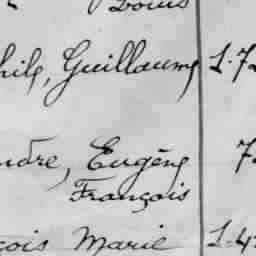 Louis
hile, Guillaume 1.7
ndre, Eugène 7
François
çois Marie 1.4